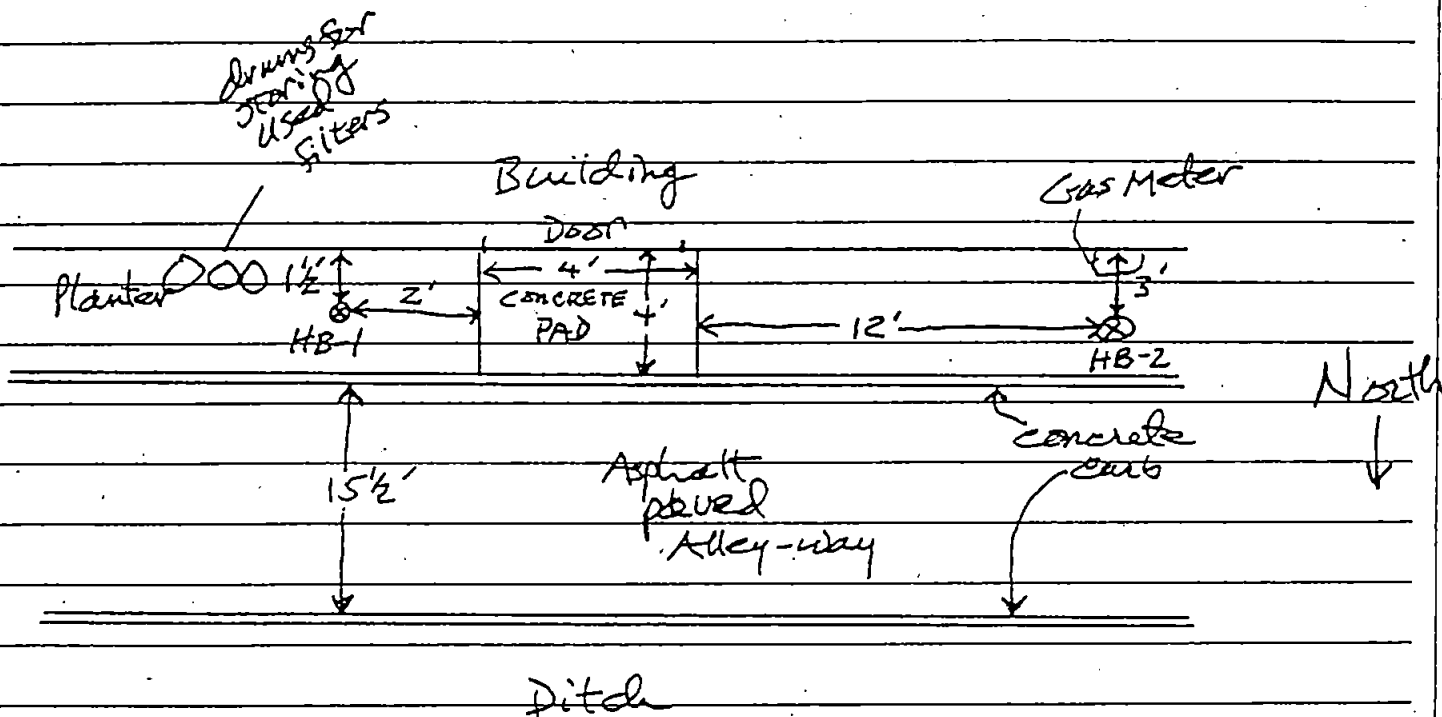 drums for
storing
used
filters
Building
Gas Meter
Door
Planter
1½'
4'
3'
2'
CONCRETE
PAD
4'
12'
HB-1
HB-2
North
concrete
curb
15½'
Asphalt
paved
Alley-way
Ditch